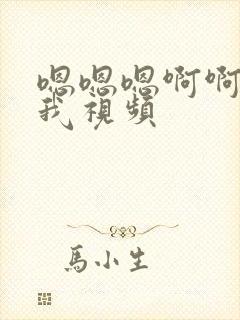 嗯嗯嗯啊啊
我視頻
馬小生